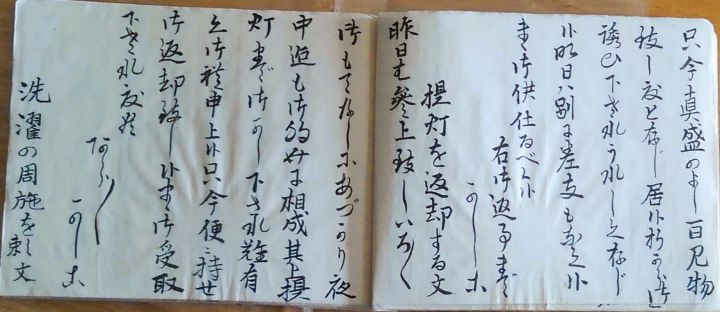 只今真盛のよし一百見物
致し度と存じ居候折から御
誘ひ下されうれしく存じ
候明日ハ別に差支もなく候
まゝ御供仕るべく候
右御返事まで
かしこ
提灯を返却する文
昨日は参上致しいろ〱
御もてなしにあづかり夜
中迄も御的めに相成其上提
灯まで御かし下され難有
く御礼申上候只今使に持せ
御返却致し候まゝ御受取
下され度候
あら〱
かしこ
洗濯の周施をたのむ文